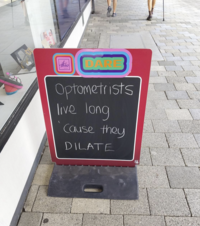 DARE
Optometrists
live long
'cause they
DILATE